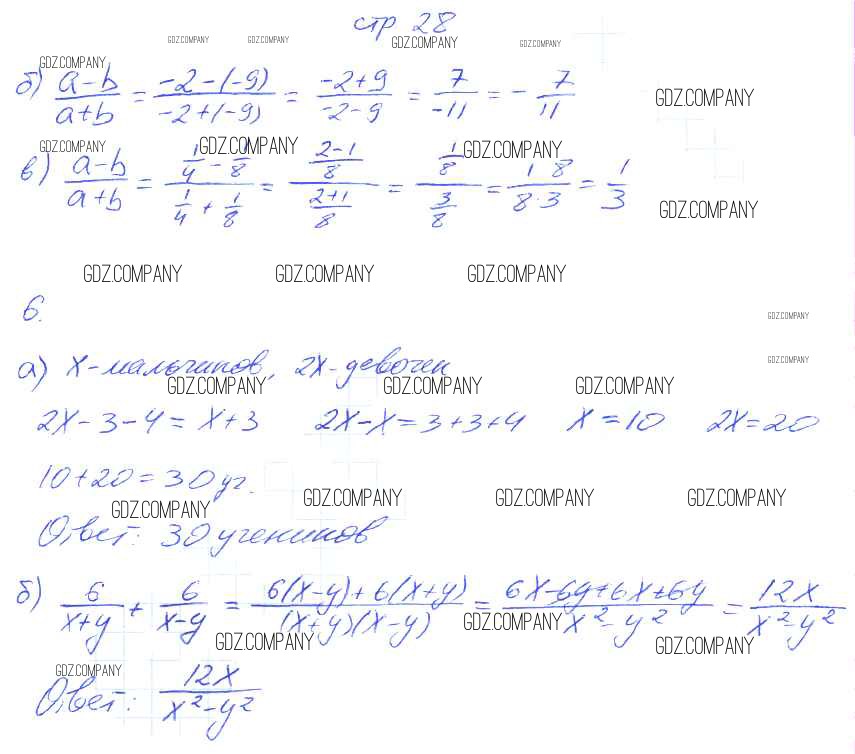 стр 28
GDZ.COMPANY GDZ.COMPANY GDZ.COMPANY GDZ.COMPANY
GDZ.COMPANY
б) (a-b)/(a+b) = (-2-(-9))/(-2+(-9)) = (-2+9)/(-2-9) = 7/(-11) = - 7/11
GDZ.COMPANY
GDZ.COMPANY GDZ.COMPANY GDZ.COMPANY
в) (a-b)/(a+b) = (1/4 - 1/8)/(1/4 + 1/8) = ((2-1)/8)/((2+1)/8) = (1/8)/(3/8) = (1 8)/(8·3) = 1/3
GDZ.COMPANY
GDZ.COMPANY GDZ.COMPANY GDZ.COMPANY
6.
GDZ.COMPANY
GDZ.COMPANY
а) x-мальчиков, 2x-девочек
GDZ.COMPANY GDZ.COMPANY GDZ.COMPANY
2x-3-4=x+3 2x-x=3+3+4 x=10 2x=20
10+20=30 уч.
GDZ.COMPANY GDZ.COMPANY GDZ.COMPANY GDZ.COMPANY
Ответ: 30 учеников
б) 6/(x+y) + 6/(x-y) = (6(x-y)+6(x+y))/((x+y)(x-y)) = (6x-6y+6x+6y)/(x²-y²) = 12x/(x²-y²)
GDZ.COMPANY GDZ.COMPANY GDZ.COMPANY
GDZ.COMPANY
Ответ: 12x/(x²-y²)